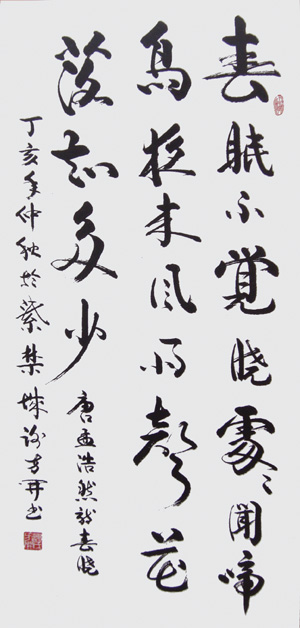 春眠不覺晓處々聞啼
鳥夜来風雨聲花
落知多少
唐孟浩然詩春晓
丁亥年仲秋於紫禁城